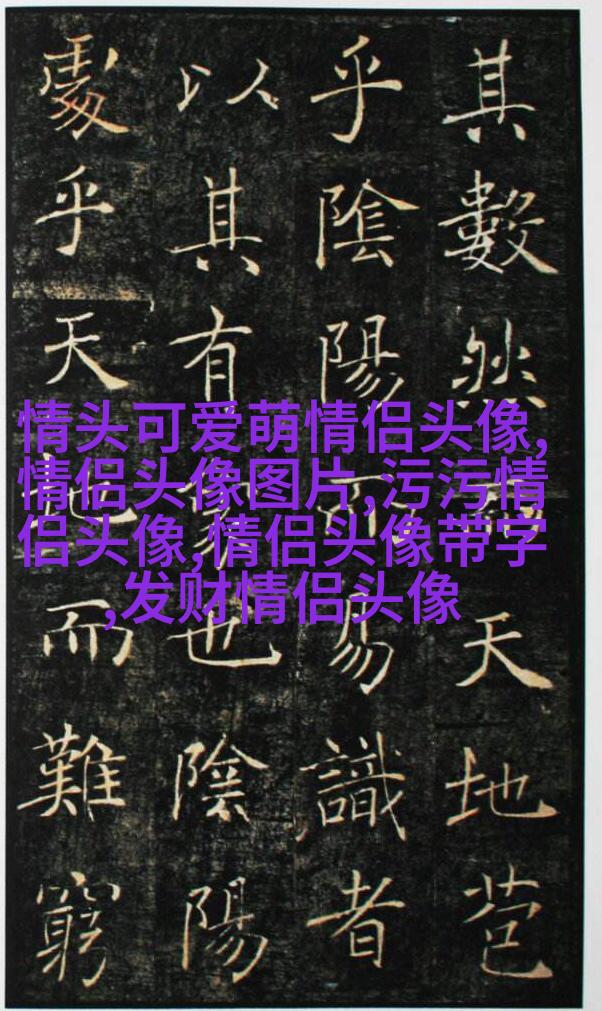 其數然天地苞
乎陰陽而易識者
以其有象也陰陽
處乎天地而難窮
情头可爱萌情侣头像,
情侣头像图片,污污情
侣头像,情侣头像带字
,发财情侣头像